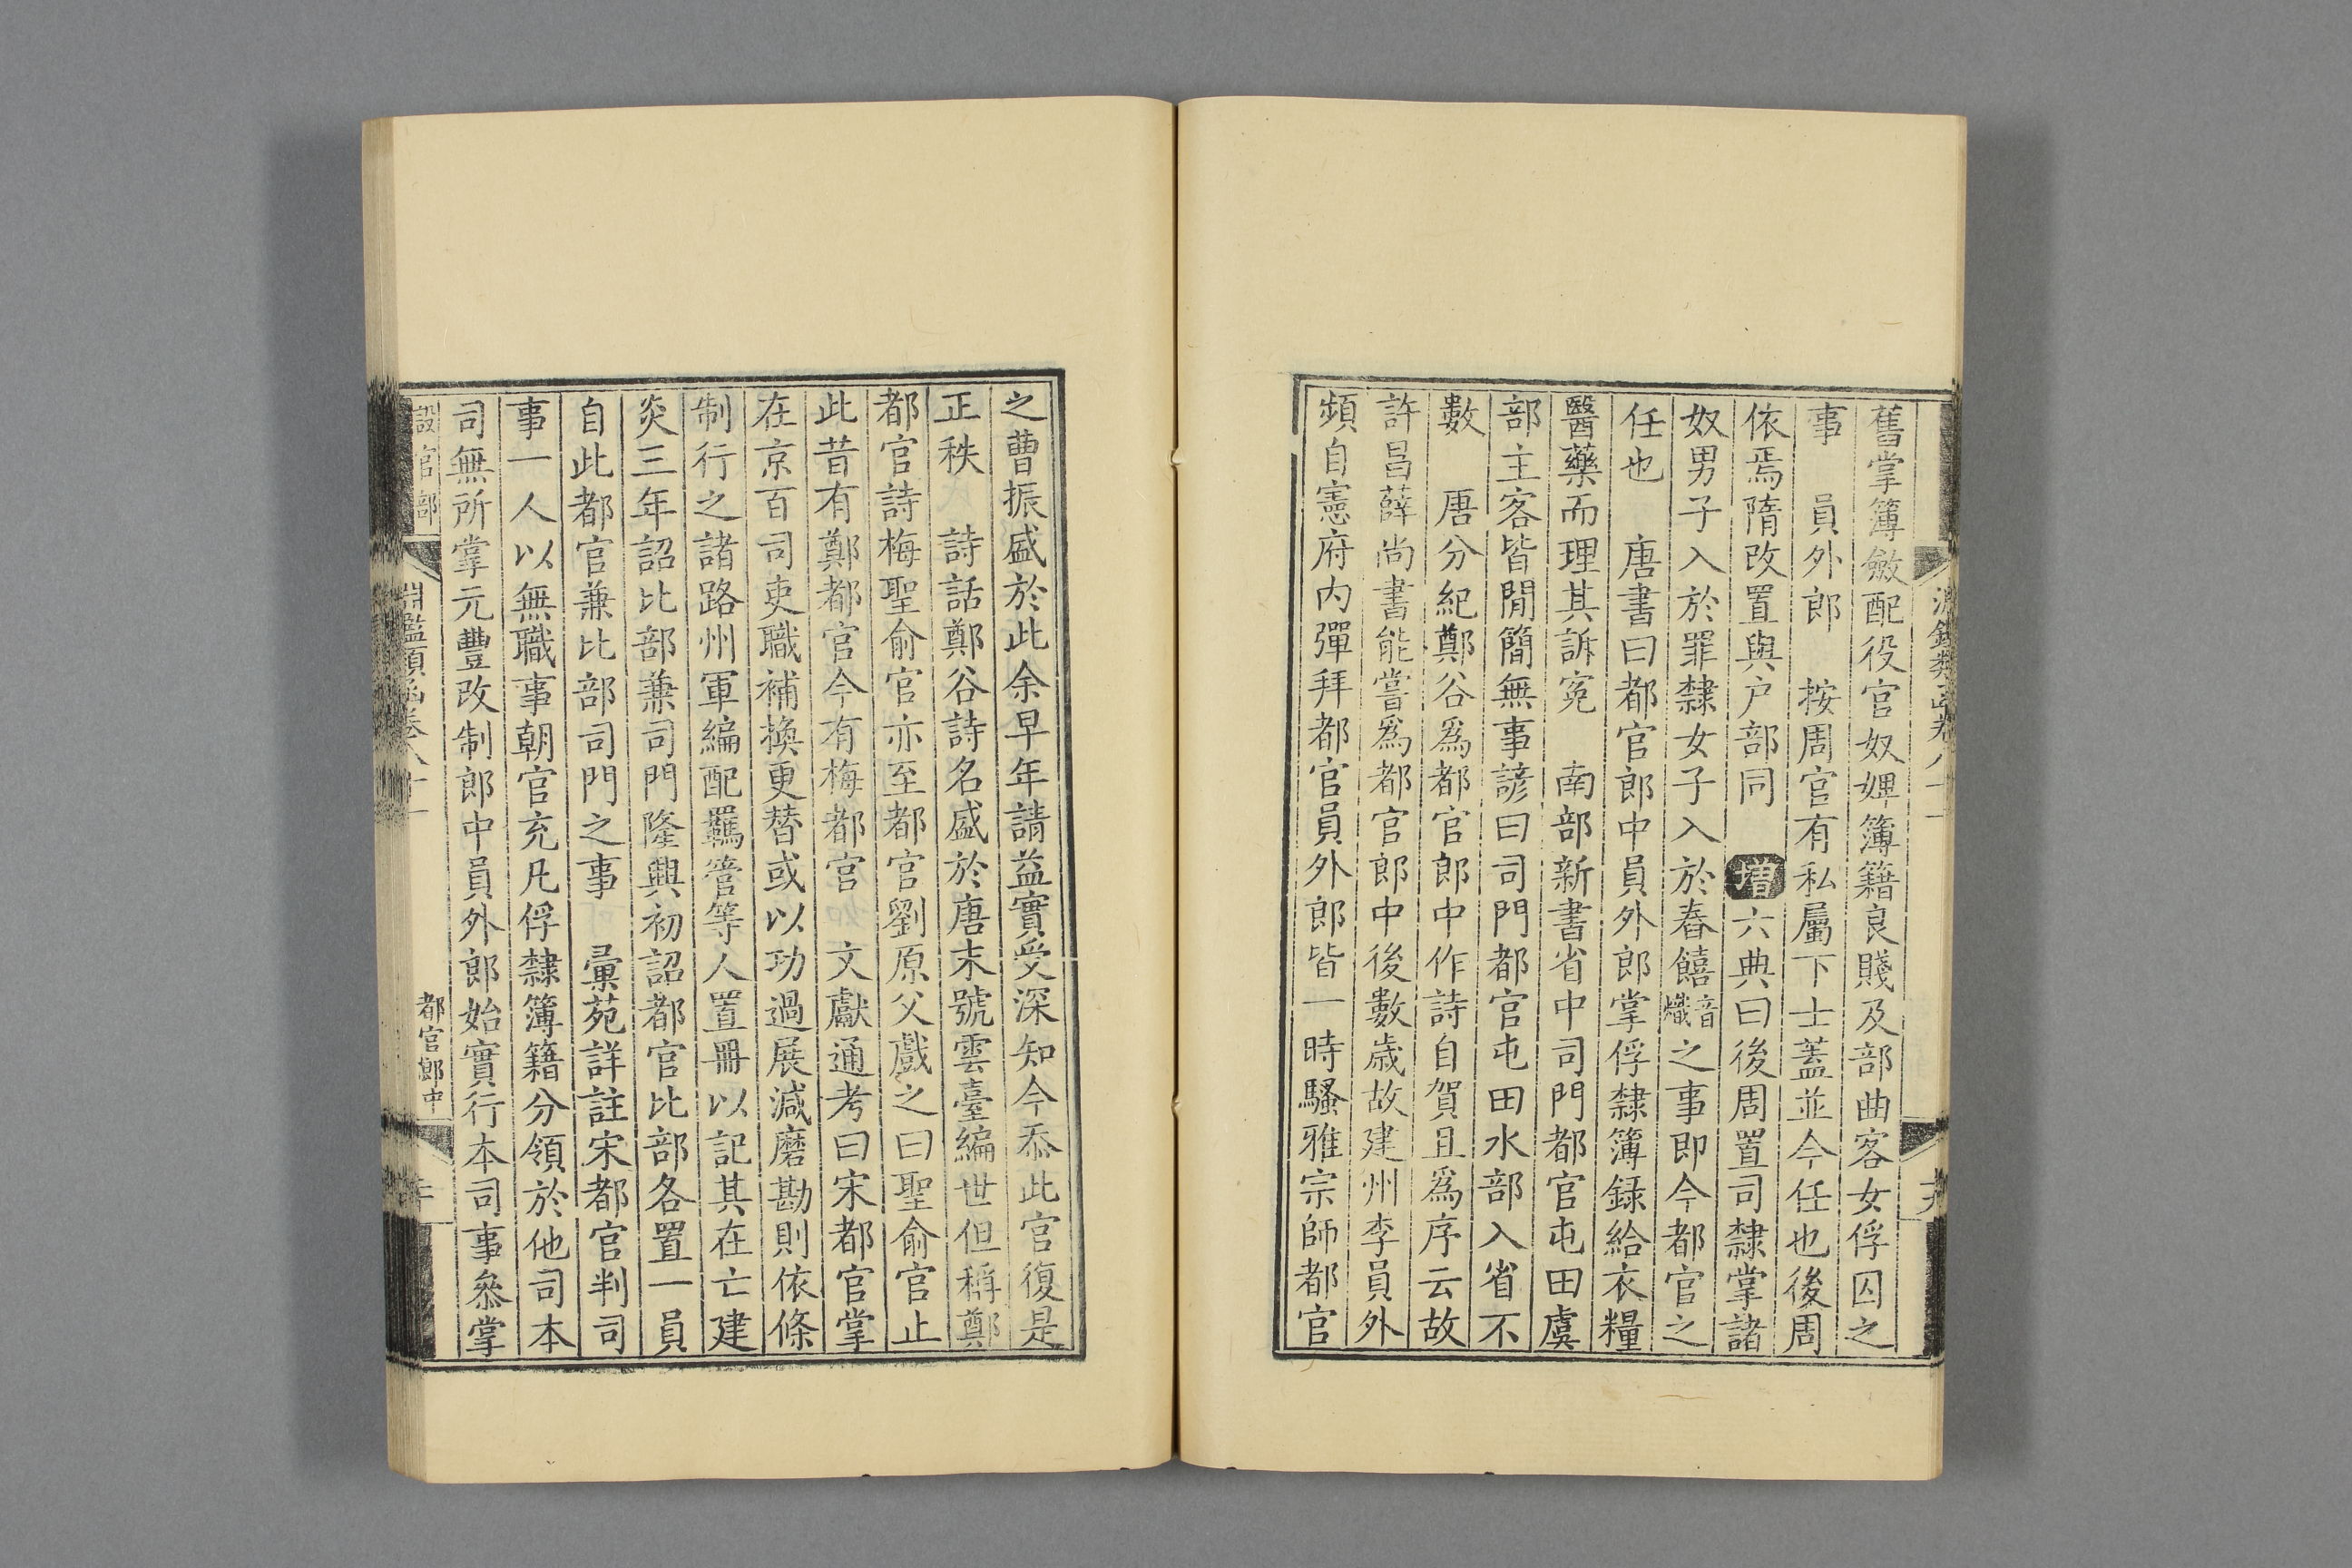 舊掌簿斂配役官奴婢簿籍良賤及部曲客女俘囚之
事　員外郎　按周官有私屬下士蓋並今任也後周
依焉隋改置與户部同　增六典曰後周置司隸掌諸
奴男子入於罪隸女子入於舂饎音熾之事即今都官之
任也　唐書曰都官郎中員外郎掌俘隸簿録給衣糧
醫藥而理其訴寃　南部新書省中司門都官屯田虞
部主客皆閒簡無事諺曰司門都官屯田水部入省不
數　唐分紀鄭谷爲都官郎中作詩自賀且爲序云故
許昌薛尚書能嘗爲都官郎中後數歳故建州李員外
頻自憲府内彈拜都官員外郎皆一時騷雅宗師都官
之曹振盛於此余早年請益實受深知今忝此官復是
正秩　詩話鄭谷詩名盛於唐末號雲臺編世但稱鄭
都官詩梅聖俞官亦至都官劉原父戲之曰聖俞官止
此昔有鄭都官今有梅都官　文獻通考曰宋都官掌
在京百司吏職補換更替或以功過展減磨勘則依條
制行之諸路州軍編配羈管等人置冊以記其在亡建
炎三年詔比部兼司門隆興初詔都官比部各置一員
自此都官兼比部司門之事　彙苑詳註宋都官判司
事一人以無職事朝官充凡俘隸簿籍分領於他司本
司無所掌元豐改制郎中員外郎始實行本司事叅掌
設官部
淵鑑類函卷八十一
都官郎中